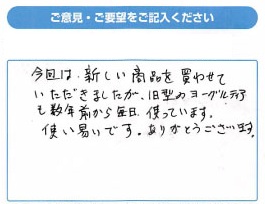 ご意見・ご要望をご記入ください
今回は、新しい商品を買わせて
いただきましたが、旧型のヨーグルティア
も数年前から毎日、使っています。
使い易いです。ありがとうございます。